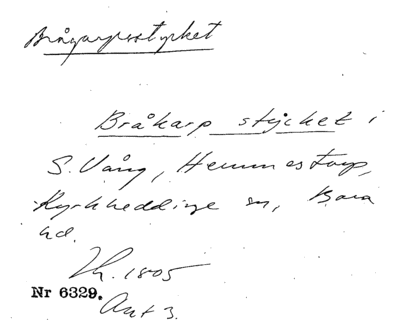 Brågarpsstycket
Bråkarp stycket i
S. Vång, Hemmestorp,
Kyrkheddinge sn, Bara
hd.
Lh. 1805
Nr 6329.
Akt 3.